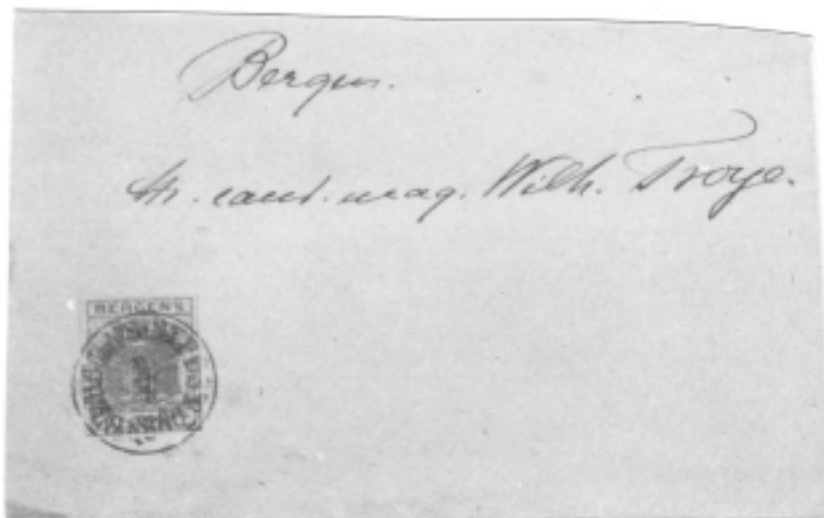 Bergen.
Hr. cand. mag. Wilh. Troye.
BERGENS